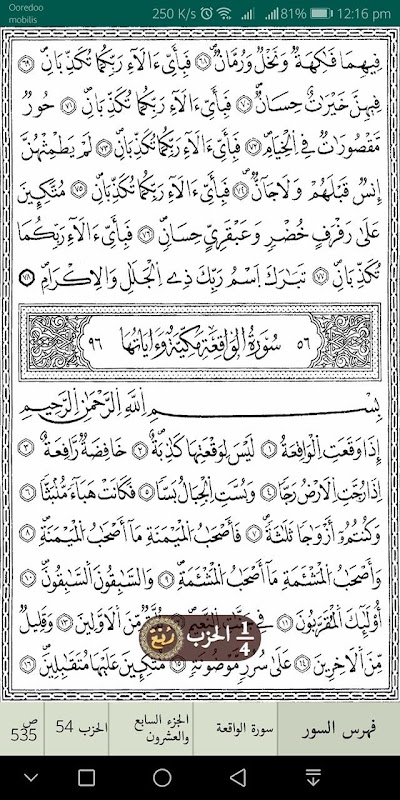 Ooredoo
mobilis
250 K/s 81% 12:16 pm
فِيهِمَا فَٰكِهَةٌ وَنَخْلٌ وَرُمَّانٌ ٦٨ فَبِأَيِّ ءَالَآءِ رَبِّكُمَا تُكَذِّبَانِ ٦٩
فِيهِنَّ خَيْرَٰتٌ حِسَانٌ ٧٠ فَبِأَيِّ ءَالَآءِ رَبِّكُمَا تُكَذِّبَانِ ٧١ حُورٌ
مَّقْصُورَٰتٌ فِي الْخِيَامِ ٧٢ فَبِأَيِّ ءَالَآءِ رَبِّكُمَا تُكَذِّبَانِ ٧٣ لَمْ يَطْمِثْهُنَّ
إِنسٌ قَبْلَهُمْ وَلَا جَآنٌّ ٧٤ فَبِأَيِّ ءَالَآءِ رَبِّكُمَا تُكَذِّبَانِ ٧٥ مُتَّكِـِٕينَ
عَلَىٰ رَفْرَفٍ خُضْرٍ وَعَبْقَرِيٍّ حِسَانٍ ٧٦ فَبِأَيِّ ءَالَآءِ رَبِّكُمَا
تُكَذِّبَانِ ٧٧ تَبَٰرَكَ اَسْمُ رَبِّكَ ذِے اِ۬لْجَلَٰلِ وَالِاكْرَامِ ٧٨
٥٦ سُورَةُ الوَاقِعَةِ مَكِيَّة وَءَايَاتُهَا ٩٦
بِسْمِ اللَّهِ الرَّحْمَٰنِ الرَّحِيمِ
إِذَا وَقَعَتِ الْوَاقِعَةُ ١ لَيْسَ لِوَقْعَتِهَا كَاذِبَةٌ ٢ خَافِضَةٌ رَّافِعَةٌ ٣
اِذَا رُجَّتِ الْأَرْضُ رَجًّا ٤ وَبُسَّتِ الْجِبَالُ بَسًّا ٥ فَكَانَتْ هَبَآءً مُّنۢبَثًّا ٦
وَكُنتُمُۥٓ أَزْوَٰجًا ثَلَٰثَةً ٧ فَأَصْحَٰبُ الْمَيْمَنَةِ مَآ أَصْحَٰبُ الْمَيْمَنَةِ ٨
وَأَصْحَٰبُ الْمَشْـَٔمَةِ مَآ أَصْحَٰبُ الْمَشْـَٔمَةِ ٩ وَالسَّٰبِقُونَ السَّٰبِقُونَ ١٠
أُوْلَٰٓئِكَ الْمُقَرَّبُونَ ١١ فِي جَنَّٰتِ النَّعِيمِ ثُلَّةٌ مِّنَ الْأَوَّلِينَ ١٣ وَقَلِيلٌ
مِّنَ الْأَخِرِينَ ١٤ عَلَىٰ سُرُرٍ مَّوْضُونَةٍ مُّتَّكِـِٕينَ عَلَيْهَا مُتَقَٰبِلِينَ ١٦
1/4 الحزب ربع
فهرس السور
سورة الواقعة
الجزء السابع والعشرون
الحزب 54
ص 535